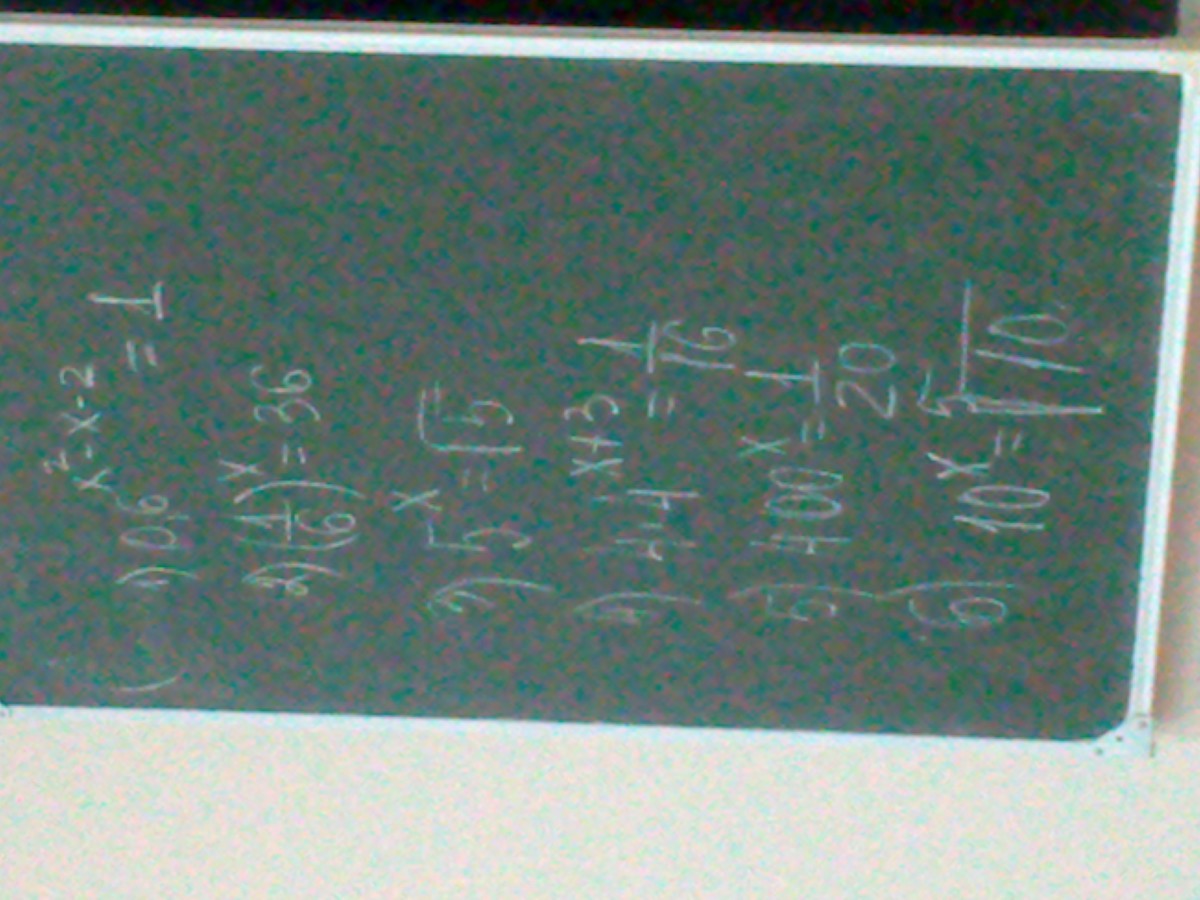 1) 0,6^{x²-x-2} = 1
2) (1/6)^x = 36
3) 5^x = √5
4) 4^{x+3} = 1/16
5) 400^x = 1/20
6) 10^x = ⁵√10